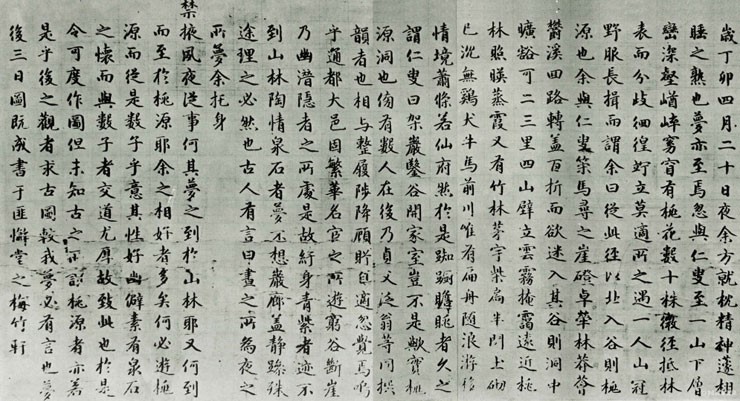 歲丁卯四月二十日夜余方就枕精神蘧栩
睡之熟也夢亦至焉忽與仁叟至一山下層
巒深壑崷崒窈窅有桃花數十株微徑抵林
表而分歧徊徨竚立莫適所之遇一人山冠
野服長揖而謂余曰從此徑以北入谷則桃
源也余與仁叟策馬尋之崖磴卓犖林莽薈
鬱溪回路轉盖百折而欲迷入其谷則洞中
曠豁可二三里四山壁立雲霧掩靄遠近桃
林照暎蒸霞又有竹林茅宇柴扃半開土砌
已沈無鷄犬牛馬前川唯有扁舟隨浪游移
情境蕭條若仙府然於是踟躕瞻眺者久之
謂仁叟曰架巖鑿谷開家室豈不是歟實桃
源洞也傍有數人在後乃貞父泛翁等同撰
韻者也相與整履陟降顧眄自適忽覺焉嗚
乎通都大邑固繁華名宦之所遊窮谷斷崖
乃幽潛隱者之所處是故紆身青紫者迹不
到山林陶情泉石者夢不想巖廊盖静躁殊
途理之必然也古人有言曰晝之所爲夜之
所夢余托身
禁掖夙夜從事何其夢之到於山林耶又何到
而至於桃源耶余之相好者多矣何必遊桃
源而從是數子乎意其性好幽僻素有泉石
之懷而與數子者交道尤厚故致此也於是
令可度作圖但未知古之所謂桃源者亦若
是乎後之觀者求古圖較我夢必有言也夢
後三日圖旣成書于匪懈堂之梅竹軒